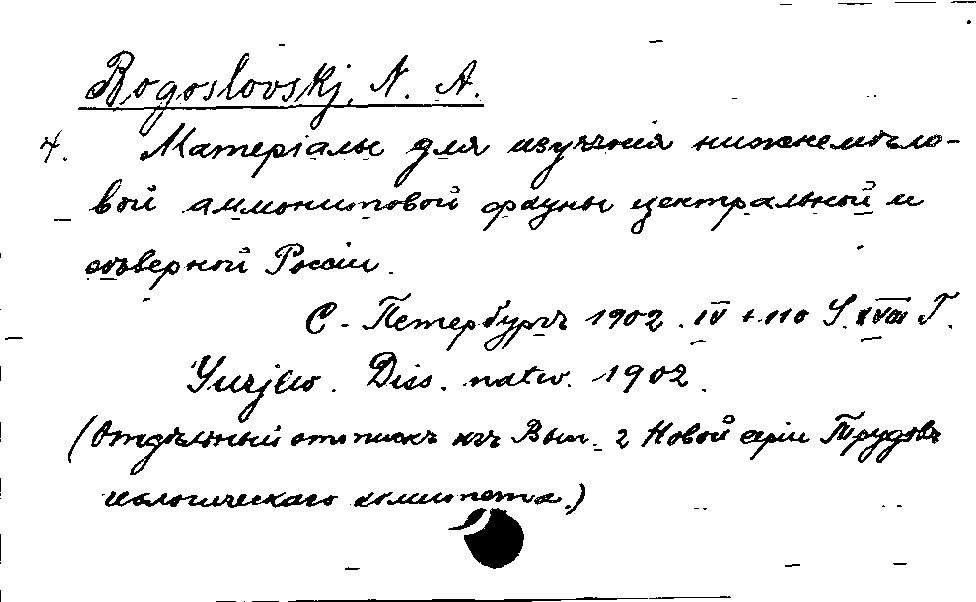 Bogoslovskj, N. A.
4. Матеріалы для изученія нижнемѣло-
вой аммонитовой фауны центральной и
сѣверной Россіи.
С-Петербургъ 1902. IV + 110 S. XVIII T.
Jurjew. Diss. natw. 1902.
(Отдѣльный оттискъ изъ Вып. 2 Новой серіи Трудовъ
геологическаго комитета.)